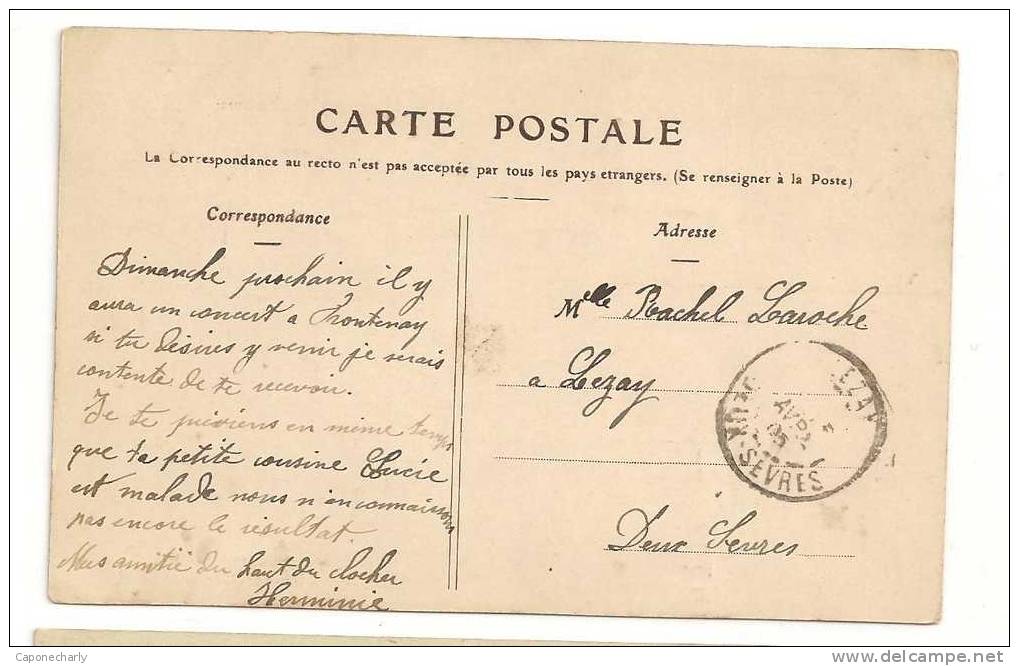 CARTE POSTALE
La Correspondance au recto n'est pas acceptée par tous les pays etrangers. (Se renseigner à la Poste)
Correspondance
Dimanche prochain il y
aura un concert a Frontenay
si tu désires y venir je serais
contente de te recevoir.
Je te préviens en même temps
que ta petite cousine Lucie
est malade nous n'en connaissons
pas encore le résultat.
Mes amitié du haut du clocher
Herminie
Adresse
Mlle Rachel Laroche
a Lezay
Deux Sevres
EZAY
AVR
05
DEUX-SEVRES
Caponecharly
delcampe.net